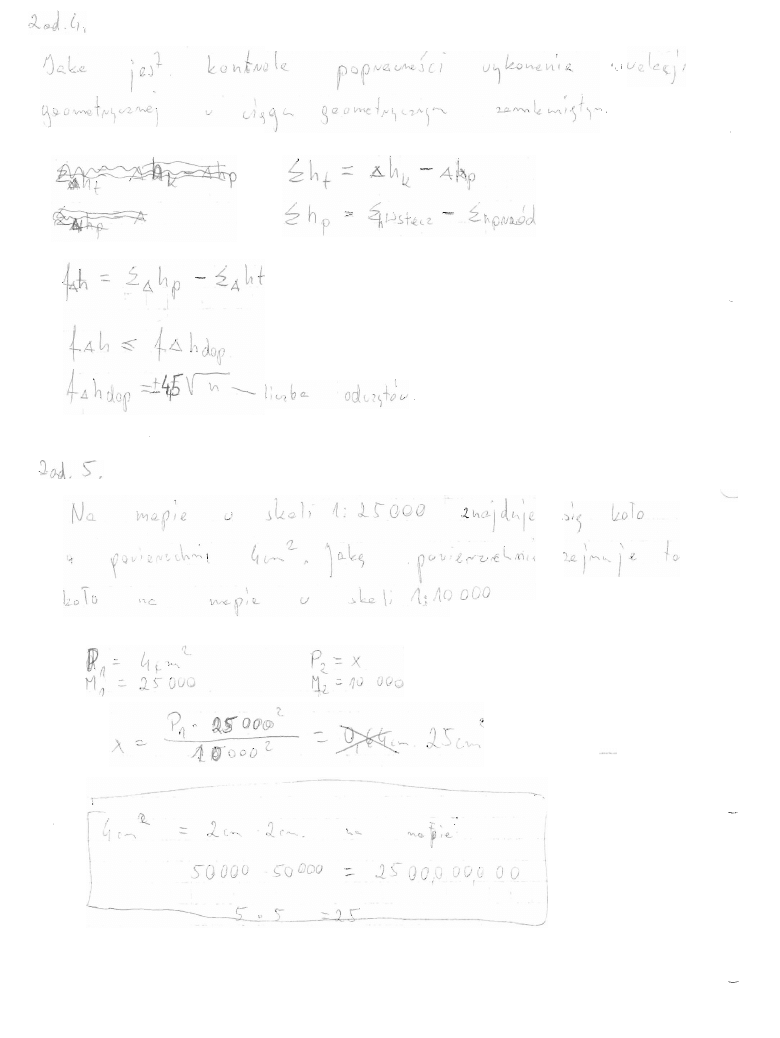 Zad. 4.
Jaka jest kontrola poprawności wykonania niwelacji
geometrycznej w ciągu geometrycznym zamkniętym.
Σht = Δhk - Δhp
Σhp = Σhwstecz - Σhprzód
fΔh = ΣΔhp - ΣΔht
fΔh ≤ fΔhdop
fΔhdop = ±4 √n — liczba odczytów.
Zad. 5.
Na mapie w skali 1:25000 znajduje się koło
o powierzchni 4cm². Jaką powierzchnię zajmuje to
koło na mapie w skali 1:10 000
P₁ = 4cm² P₂ = x
M₁ = 25 000 M₂ = 10 000
x = P₁ · 25 000² / 10 000² = 0,64cm 25cm²
4cm² = 2cm · 2cm. na mapie
50000 · 50000 = 2500,000,000
5 · 5 = 25